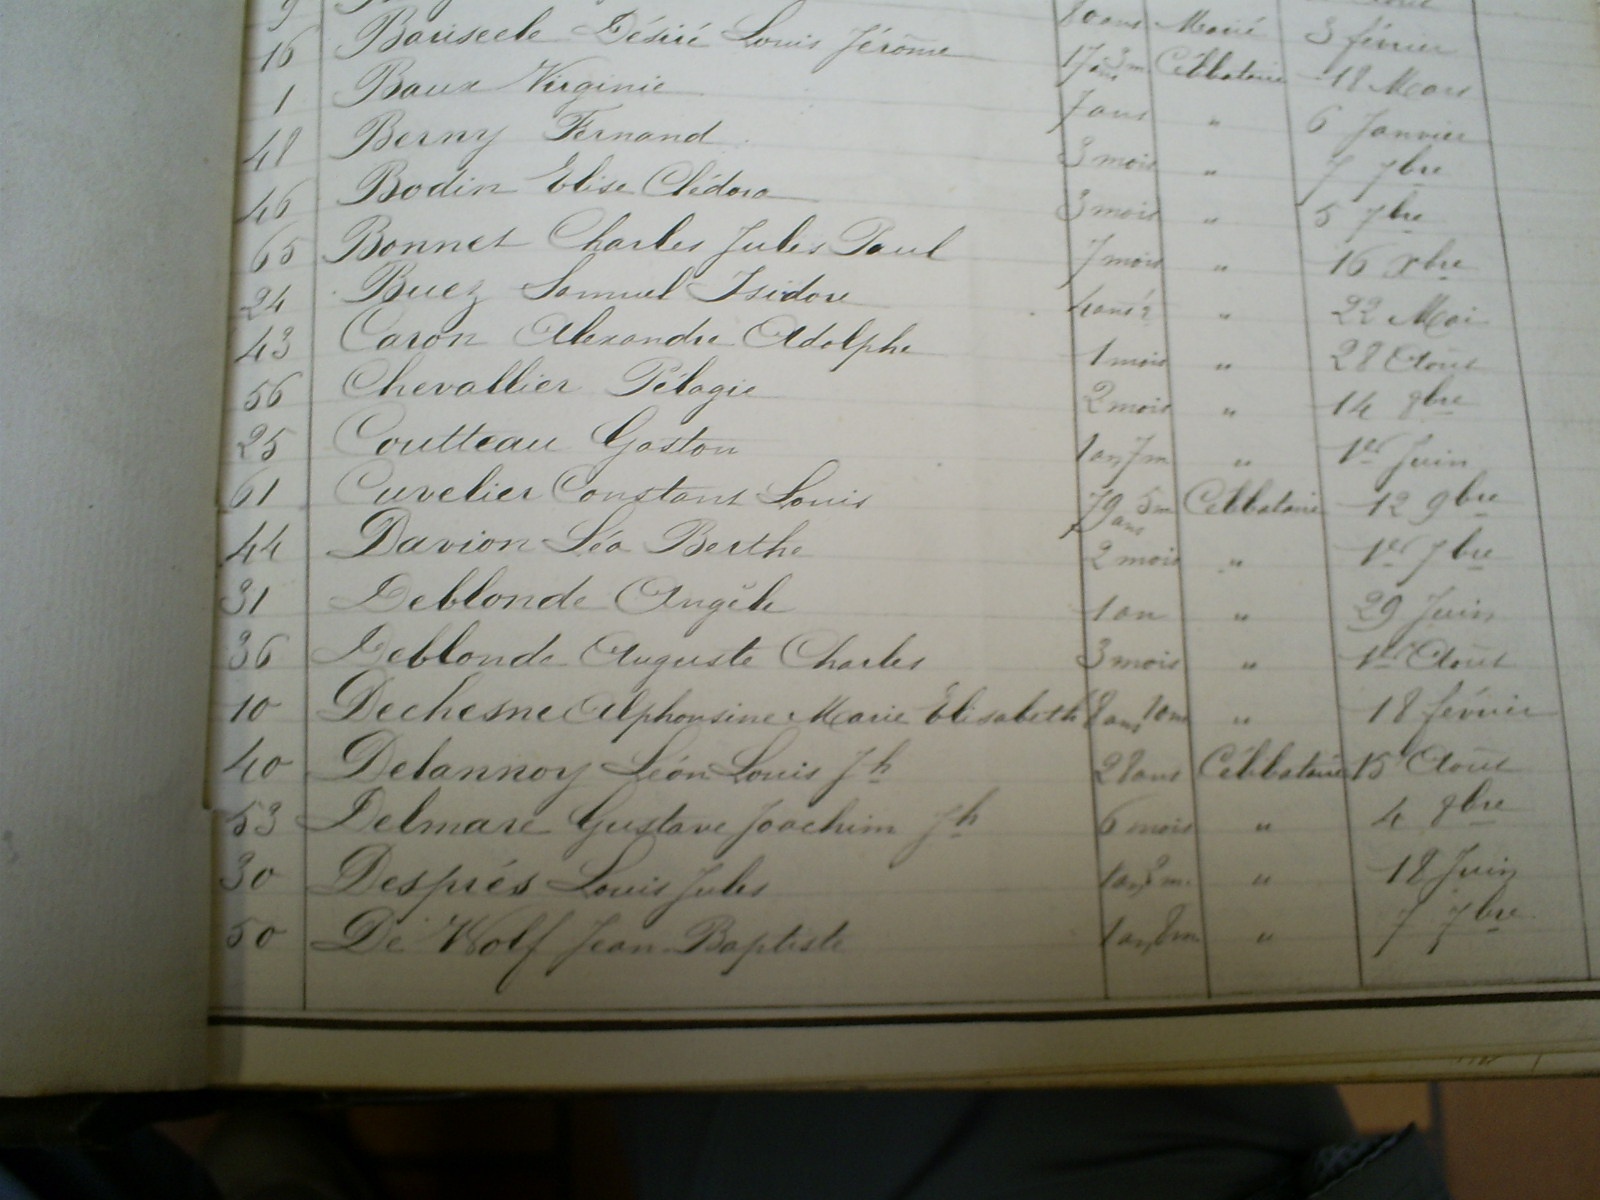 9 80 ans Marié 3 février
16 Bauseele Désiré Louis Jérôme 17 ans 3 m Célibataire 18 Mars
1 Baux Virginie 7 ans " 6 Janvier
48 Berny Fernand 3 mois " 7 7bre
46 Bodin Elise Clédora 3 mois " 5 7bre
65 Bonnet Charles Jules Paul 7 mois " 16 Xbre
24 Buez Samuel Isidore 4 ans " 22 Mai
43 Caron Alexandre Adolphe 1 mois " 28 Août
56 Chevallier Pélagie 2 mois " 14 8bre
25 Coutteau Gaston 1 an 7 m " 1er Juin
61 Cuvelier Constant Louis 79 ans 5 m Célibataire 12 9bre
44 Davion Léa Berthe 2 mois " 1er 7bre
31 Deblonde Angèle 1 an " 29 Juin
36 Deblonde Auguste Charles 3 mois " 1er Août
10 Dechesne Alphonsine Marie Elisabeth 8 ans 10 m " 18 février
40 Delannoy Léon Louis Jh 28 ans Célibataire 15 Août
53 Delmare Gustave Joachim Jh 6 mois " 4 8bre
30 Desprès Louis Jules 1 an m. " 18 Juin
50 De Wolf Jean-Baptiste 1 an 8 m " 7 7bre